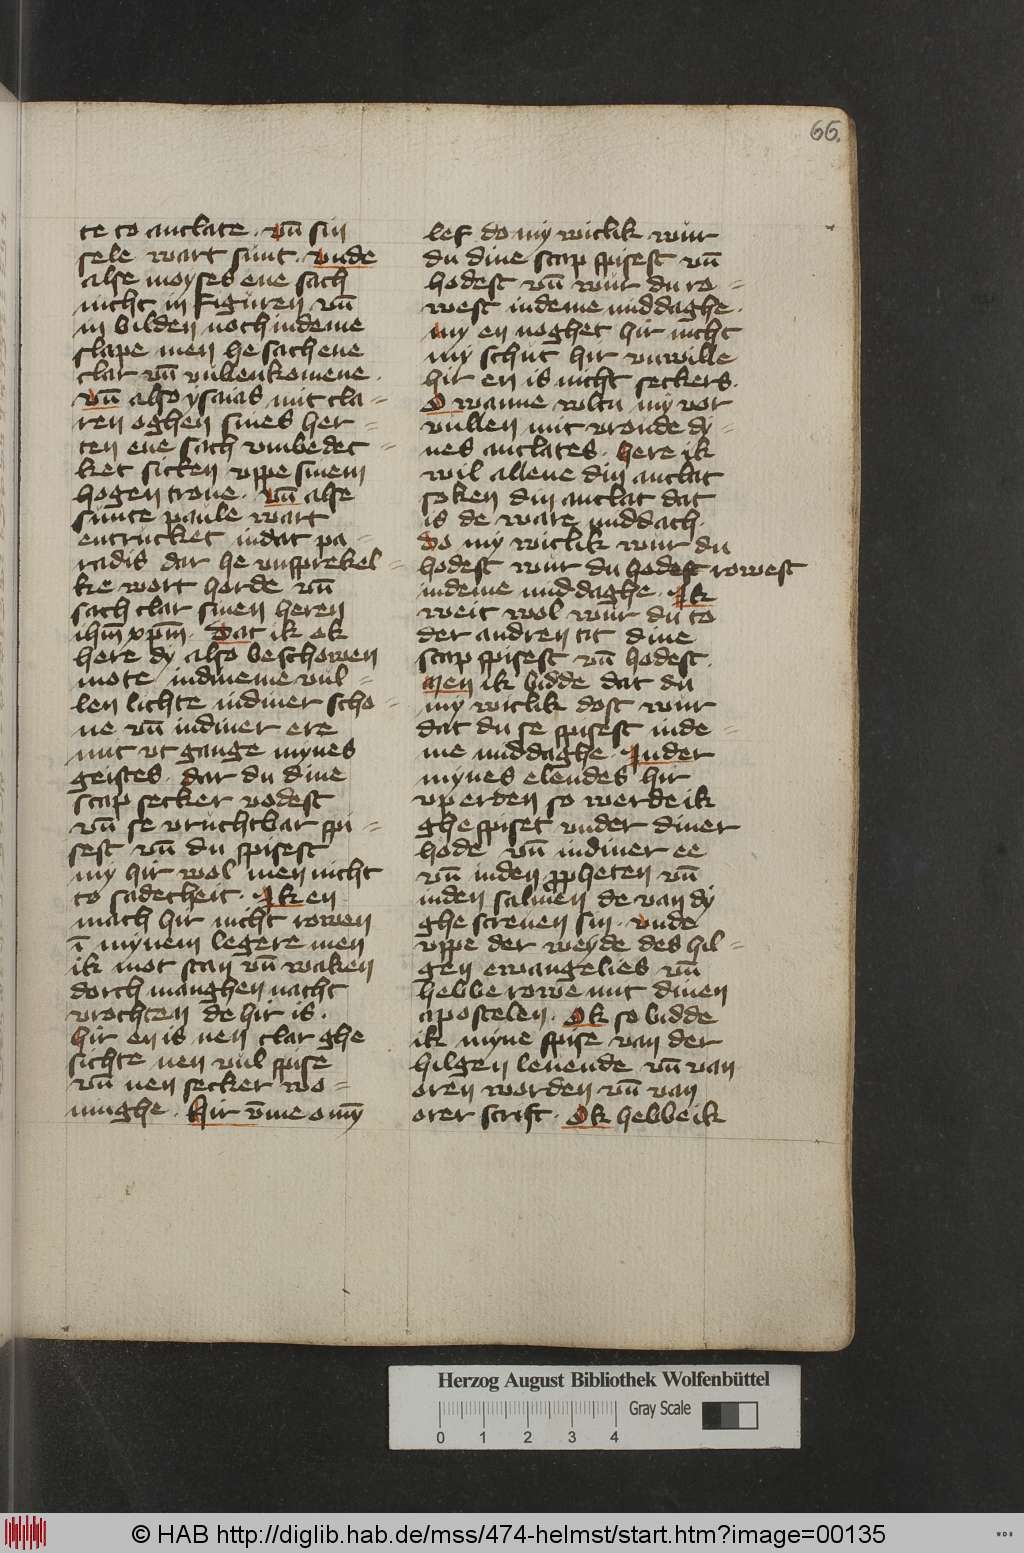 66.
te to antlate · vn̄ sin
sele wart sunt · vnde
alse moyses ene sach
nicht in figuren vn̄
in bilden noch indeme
slape men he sach ene
clar vn̄ vullenkomene ·
vn̄ also ysaias mit cla=
ren oghen sines her=
ten ene sach vmbedec=
ket sitten vppe sinem
hogen trone · vn̄ alse
sunte paule wart
entrucket indat pa=
radis dar he vnsprekel=
ke wort horde vn̄
sach clar sinen heren
ihm̄ xpm̄ · Dat ik ok
here dy also beschowen
mote indineme vul=
len lichte indiner scho=
ne vn̄ indiner ere
mit vt gange mynes
geistes · dar du dine
scap secker vodest
vn̄ se vruchtbar spi=
sest vn̄ du spisest
my hir wol men nicht
to sadecheit · Ik en
mach hir nicht rowen
ī mynem legere men
ik mot stan vn̄ waken
dorch manghen nacht
vrochten de hir is ·
hir en is nen clar ghe
sichte nen vul spise
vn̄ nen secker wo=
ninghe · Hir v̄me o my
lef do my witlik wur
du dine scap spisest vn̄
hodest vn̄ wur du ro=
west indeme middaghe ·
my en noghet hir nicht
my schut hir vnwille
hir en is nicht seckers ·
O wanne woltu my vor
vullen mit vroude dy=
nes antlates · here ik
wil allene din antlat
soken din antlat dat
is de ware middach ·
Do my witlik wur du
hodest wur du hodest rowest
indeme middaghe · Ik
weit wol wur du to
der andren tit dine
scap spisest vn̄ hodest ·
Men ik bidde dat du
my witlik dost wur
dat du se spisest inde=
me middaghe · Inder
mynes elendes hir
vp erden so werde ik
ghespiset vnder diner
hode vn̄ indiner ee
vn̄ inden ppheten vn̄
inden salmen de van dy
ghescreuen sin · vnde
vppe der weyde des hil=
gen ewangelies vn̄
hebbe rowe mit dinen
apostelen · Ok so bidde
ik myne spise van der
hilgen leuende vn̄ van
oren worden vn̄ van
orer scrift · Ok hebbe ik
Herzog August Bibliothek Wolfenbüttel
Gray Scale
0 1 2 3 4
© HAB http://diglib.hab.de/mss/474-helmst/start.htm?image=00135